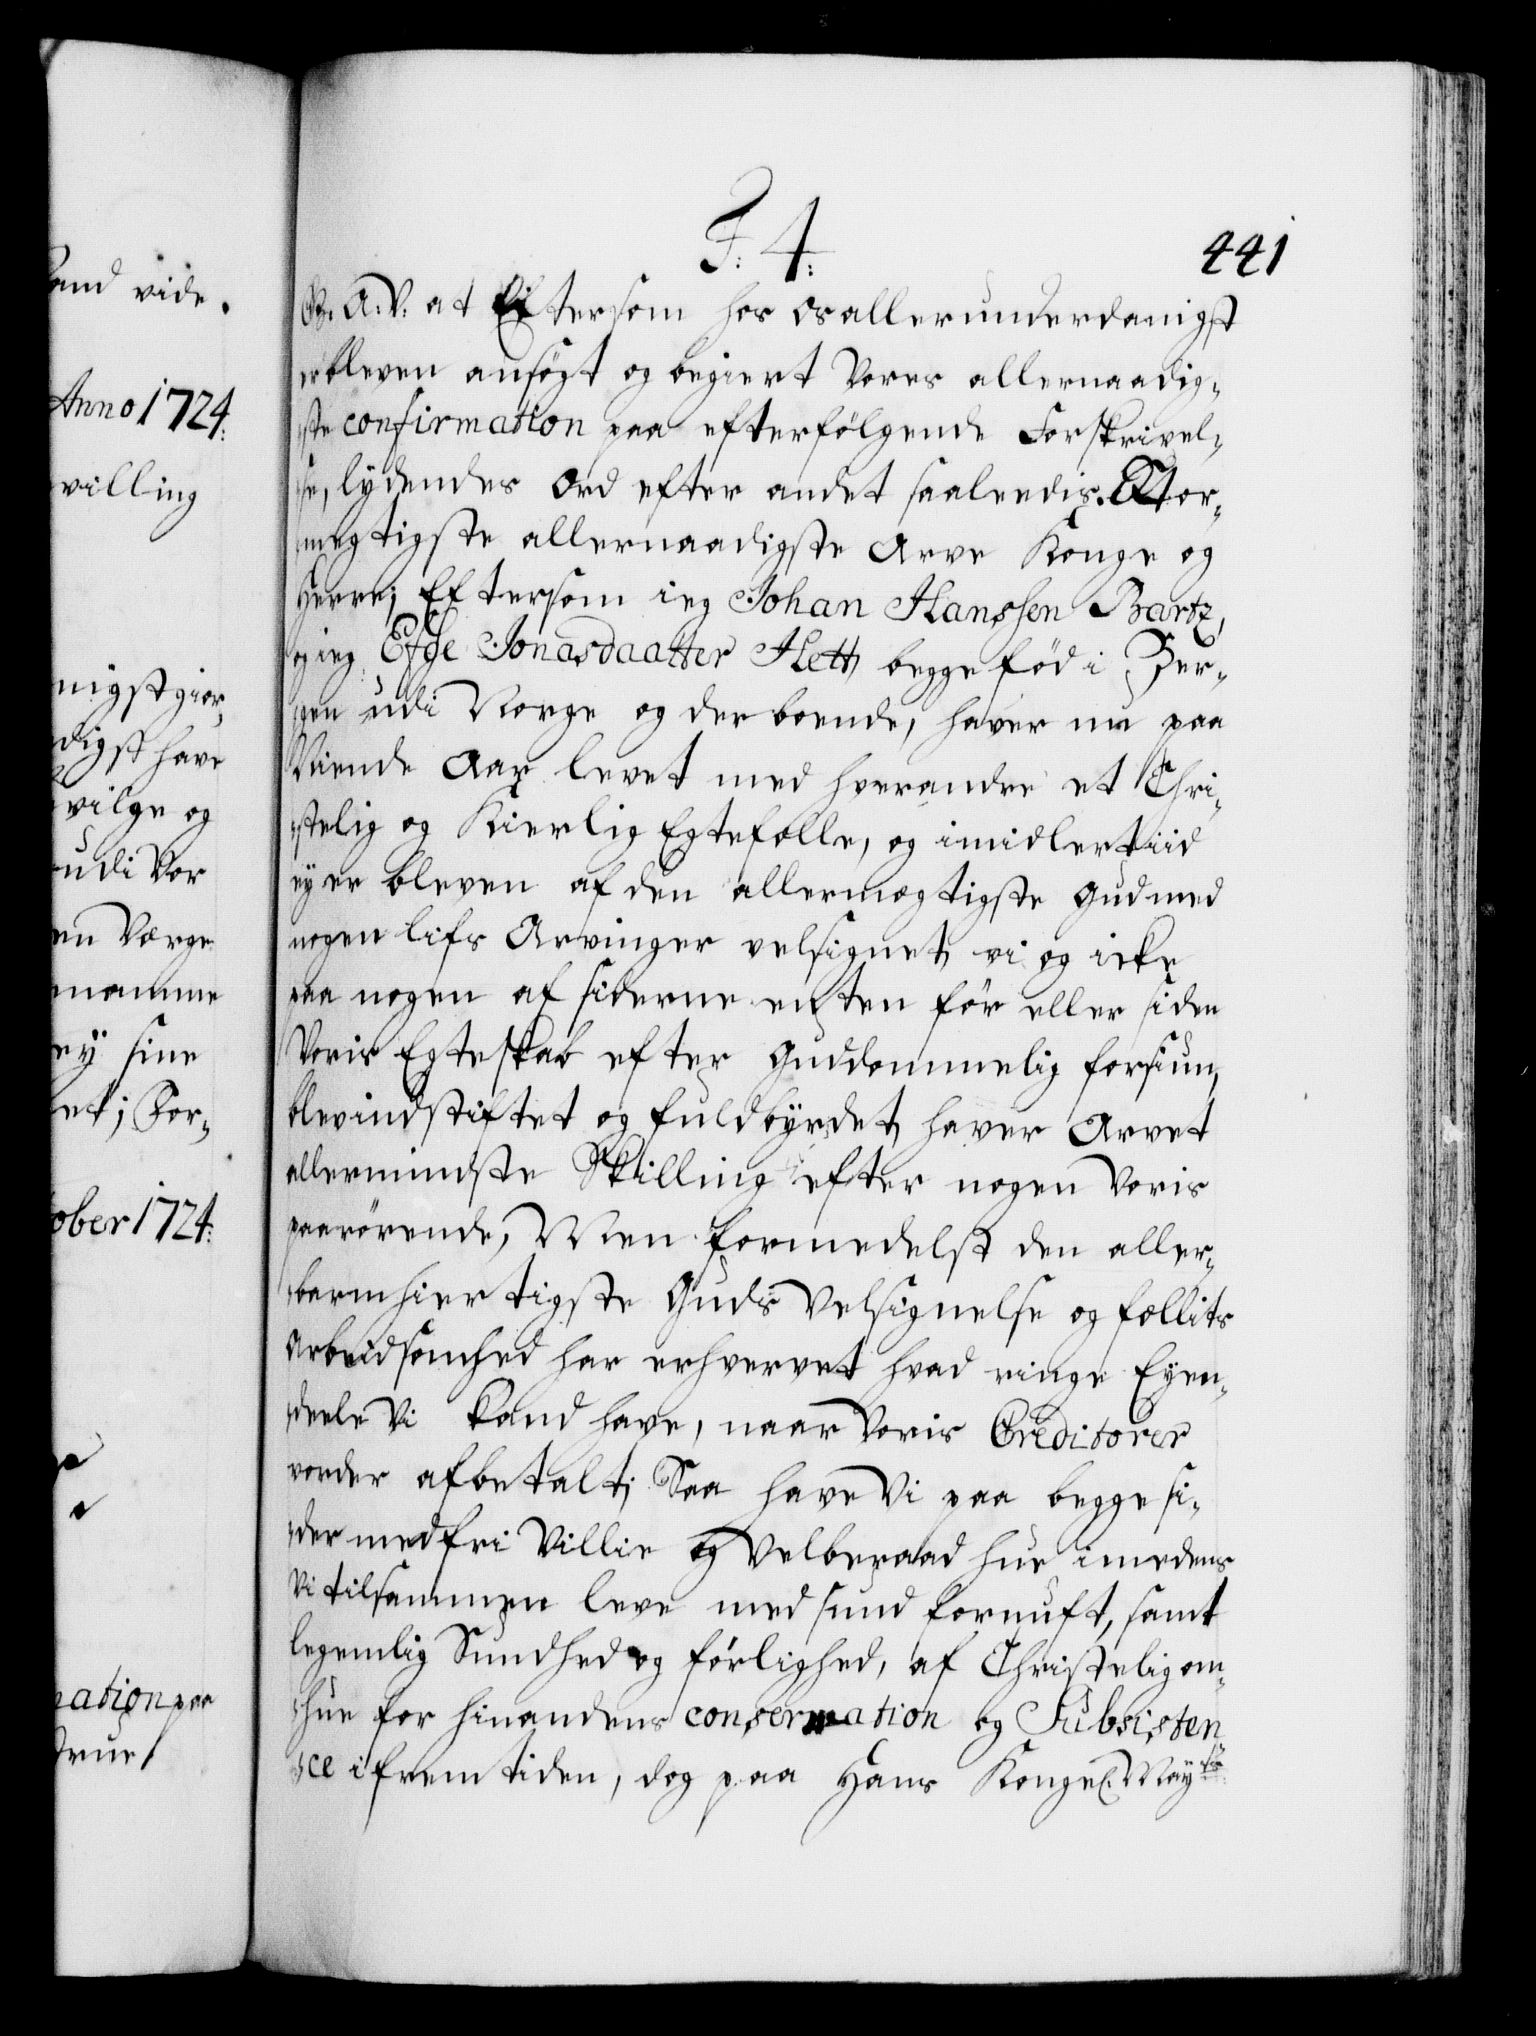 and vide.
Anno 1724.
villing
nigst giør,
digst have
vilge og
udi Vor
en Værge
namme
ey sine
et; For-
ober 1724.
nation paa
F: 4:
441
G. A. V. at Eftersom hos os allerunderdanigst
er bleven ansøgt og begiert Vores allernaadig-
ste confirmation paa efterfølgende Forskrivel-
se, lydendes Ord efter andet saaleedis. Stor-
mægtigste allernaadigste Arve Konge og
Herre; Eftersom ieg Johan Hanssen Bartz,
og ieg Jonasdaatter Hett begge fød i Ber-
gen udi Norge og der boende, haver nu paa
Niende Aar levet med hverandre et Chri-
stelig og Kierlig Egtefolle, og imidlertiid
ey er bleven af den allermægtigste Gud med
nogen lifs Arvinger velsignet, vi og icke
paa nogen af siderne enten før eller siden
Voris Egteskab efter Guddommelig forsiun,
blev indstiftet og fuldbyrdet, haver Arvet
allermindste Skilling efter nogen Voris
paarørende, Men formedelst den aller-
barmhiertigste Guds Velsignelse og follits
Arbeidsomhed har erhvervet hvad ringe Eyen-
deele Vi kand have, naar Voris Creditorer
vorder afbetalt; Saa have Vi paa begge si-
der med fri Villie og Velberaad hue imedens
Vi tilsammen leve med sund fornuft, samt
legemlig Sundhed og førlighed, af Christelig om-
hue for hinandens conservation og Subsisten-
ce i fremtiden, dog paa Hans Kongel. Mayts